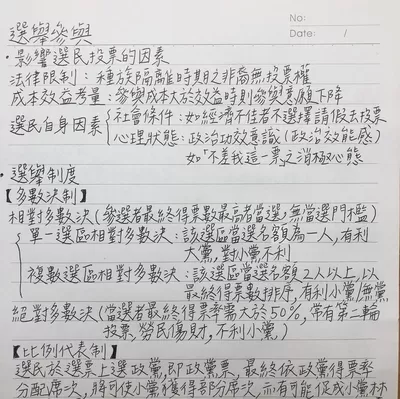 No:
Date: /
選舉參與
・影響選民投票的因素
法律限制：種族隔離時期之非裔無投票權
成本效益考量：參與成本大於效益時則參與意願下降
選民自身因素
社會條件：如經濟不佳者不選擇請假去投票
心理狀態：政治功效意識（政治效能感）
如「不差我這一票」之消極心態
・選舉制度
【多數決制】
相對多數決（參選者最終得票數最高者當選，無當選門檻）
單一選區相對多數決：該選區當選名額為一人，有利
大黨，對小黨不利
複數選區相對多數決：該選區當選名額2人以上，以
最終得票數排序，有利小黨/無黨
絕對多數決（當選者最終得票率需大於50%，帶有第二輪
投票，勞民傷財，不利小黨）
【比例代表制】
選民於選票上選政黨，即政黨票，最終依政黨得票率
分配席次，將可使小黨獲得部分席次，亦有可能促成小黨林